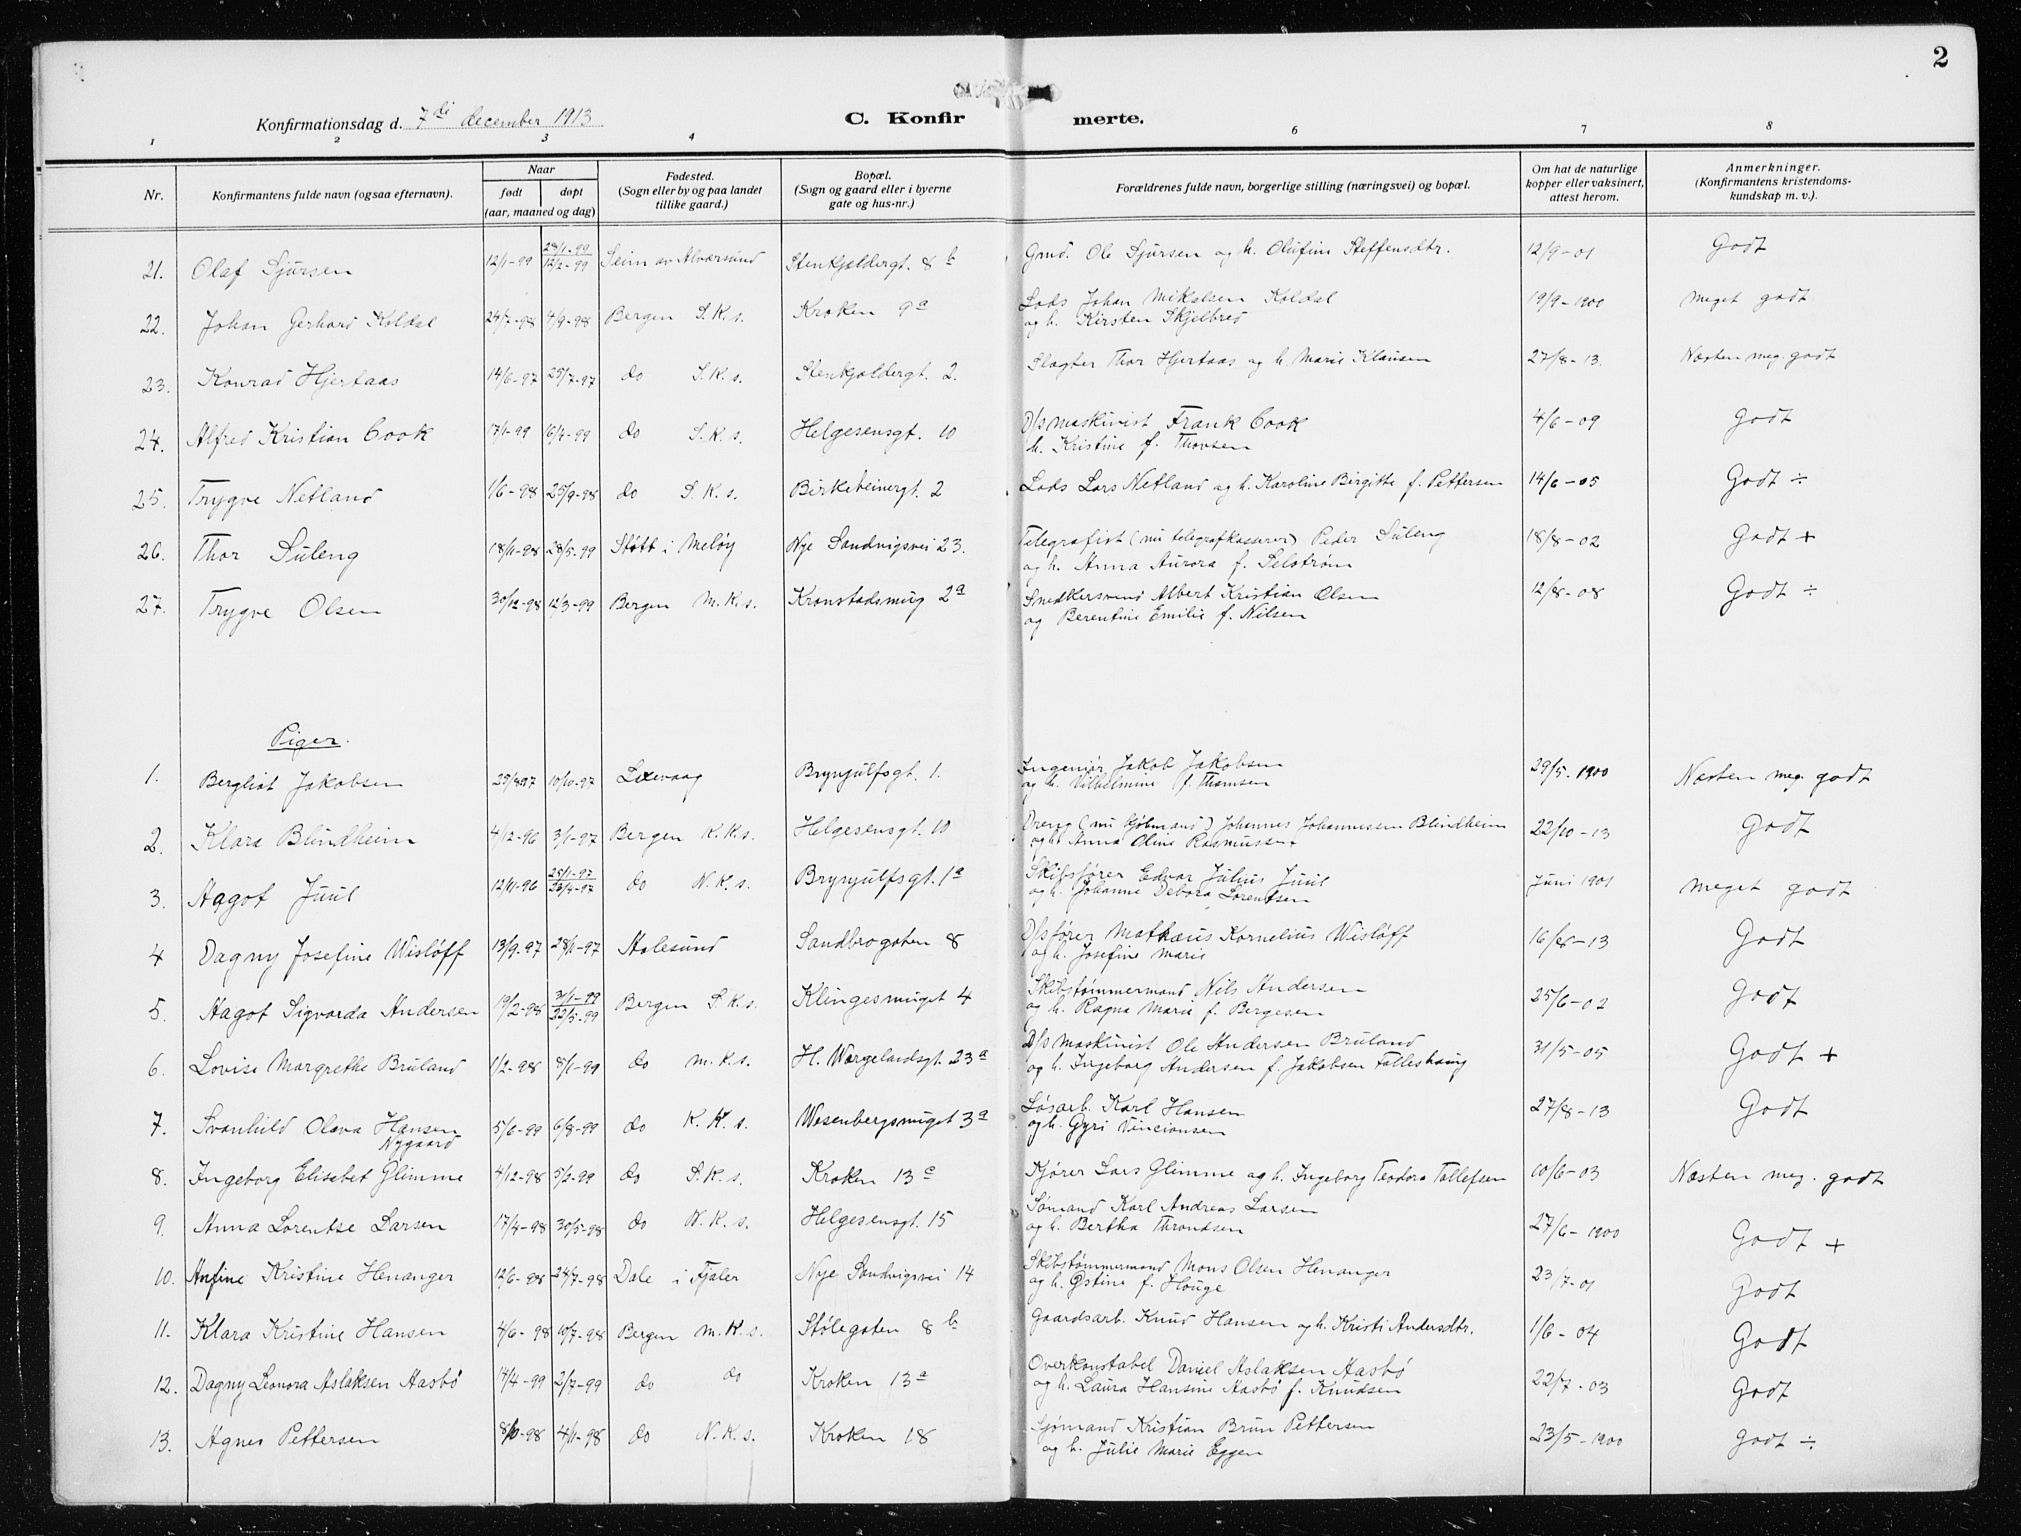 2
Konfirmationsdag d. 7di december 1913
C. Konfirmerte.
1 2 3 4 6 7 8
Nr. Konfirmantens fulde navn (ogsaa efternavn). Naar født døpt (aar, maaned og dag) Fødested. (Sogn eller by og paa landet tillike gaard.) Bopæl. (Sogn og gaard eller i byerne gate og hus-nr.) Forældrenes fulde navn, borgerlige stilling (næringsvei) og bopæl. Om hat de naturlige kopper eller vaksinert, attest herom. Anmerkninger. (Konfirmantens kristendomskundskap m. v.).
21. Olaf Sjursen 12/1-99 28/1-99 12/2-99 Seim av Alversund Stenkjeldergt. 8 b Gmd. Ole Sjursen og h. Olufine Steffensdtr. 12/9-01 Godt
22. Johan Gerhard Koldal 24/7-98 4/9-98 Bergen S.K.s. Kroken 9a Lods Johan Mikalsen Koldal 19/9-1900 Meget godt
og h. Kirsten Skjelbred
23. Konrad Hjertaas 14/6-97 25/7-97 do S.K.s. Stenkjeldergt. 2. Slagter Thor Hjertaas og h. Marie Klausen 27/8-13. Næsten meg. godt
24. Alfred Kristian Cook 17/1-99 16/4-99 do S.K.s. Helgesensgt. 10 D/s maskinist Frank Cook 4/6-09 Godt
h. Kristine f. Thorsen
25. Trygve Netland 1/6-98 25/9-98 do S.K.s. Birkebeinergt. 2 Lods Lars Netland og h. Karoline Birgitte f. Pettersen 14/6-05 Godt ÷
26. Thor Suleng 18/11-98 28/5-99 Støtt i Meløy Nye Sandvigsvei 23. Telegrafist (nu telegrafkasserer) Peder Suleng 18/8-02 Godt +
og h. Anna Aurora f. Selstrøm
27. Trygve Olsen 30/12-98 12/3-99 Bergen M.K.s. Kronstadsmug 2a Snedkersvend Albert Kristian Olsen 12/8-08 Godt ÷
og Berentine Emilie f. Nilsen
Piger.
1. Bergliot Jakobsen 25/8 97 10/10-97 Laxevaag Brynjulfsgt. 1. Ingeniør Jakob Jakobsen 29/5. 1900 Næsten meg. godt
og h. Vilhelmine f. Thomsen
2. Klara Blindheim 4/12-96 3/1-97 Bergen K.K.s. Helgesensgt. 10 Dreng (nu kjøbmand) Johannes Johannesen Blindheim 22/10-13 Godt
og h. Anna Oline Rasmussen
3. Aagot Juul 12/11-96 25/1-97 do N.K.s. Brynjulfsgt. 1a Skibsfører Edvar Julius Juul Juni 1901 meget godt
og h. Johanne Debora Lorentsen
4 Dagny Josefine Wisløff 13/9-97 28/11-97 Aalesund Sandbrogaten 8 D/s fører Mathæus Kornelius Wisløff 16/8-13 Godt
og h. Josefine Marie
5. Aagot Sigvarda Andersen 19/2-98 31/1-99 22/5-99 Bergen S.K.s. Klingesmuget 4 Skibstømmermand Nils Andersen 25/6-02 Godt
og h. Ragna Marie f. Bergesen
6. Lovise Margrethe Bruland 1/2-98 8/1-99 do M.K.s. H. Wergelandsgt. 23a D/s Maskinist Ole Andersen Bruland 31/5-05 Godt +
og h. Ingeborg Andersen f. Jakobsen Talleshaug
7. Svanhild Olava Hansen 5/6-99 6/8-99 do K.K.s. Wesenbergsmuget 3a Løsarb. Karl Hansen 27/8-13 Godt
Nygaard og h. Gyri
8. Ingeborg Elisabet Glimme 4/12-98 5/2-99 do S.K.s. Kroken 13c Kjører Lars Glimme og h. Ingeborg Teodora Tollefsen 10/6-03 Næsten meg. godt
9. Anna Lorentse Larsen 17/4-98 30/5-98 do N.K.s. Helgesensgt. 15 Sømand Karl Andreas Larsen 27/6-1900 Godt +
og h. Bertha Throndsen
10. Anfine Kristine Henanger 12/6-98 24/7-98 Dale i Fjaler Nye Sandvigsvei 14 Skibstømmermand Mons Olsen Henanger 23/7-01 Godt
og h. Østine f. Houge
11. Klara Kristine Hansen 4/6-98 10/7-98 Bergen M.K.s. Stølegaten 8 b Gaardsarb. Knud Hansen og h. Kristi Andersdtr. 1/6-04 Godt
12. Dagny Leonora Aslaksen Aasbø 14/4-99 2/7-99 do do Kroken 13a Overkonstabel Daniel Aslaksen Aasbø 22/7-03 Godt
og h. Laura Hansine Aasbø f. Knudsen
13. Agnes Pettersen 8/10-98 4/11-98 do N.K.s. Kroken 18 Sjømand Kristian Brun Pettersen 23/5-1900 Godt ÷
og h. Julie Marie Eggen